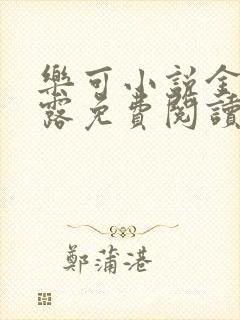 樂可小說全
露免費閱讀
鄭蒲港